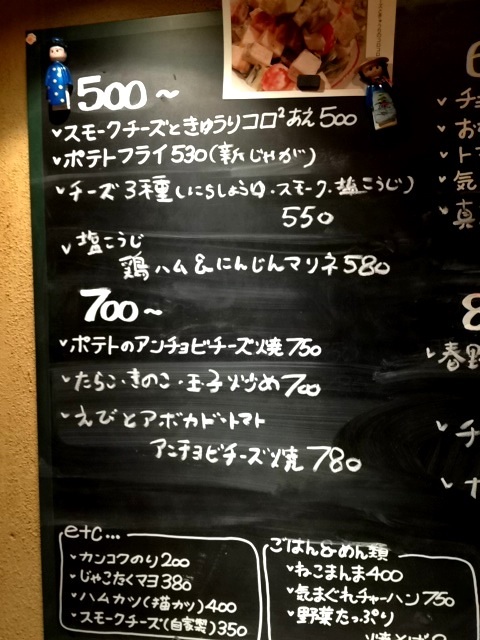 500～
スモークチーズときゅうりコロ²あえ500
ポテトフライ530(新じゃが)
チーズ3種(にらしょうゆ・スモーク・塩こうじ)
550
塩こうじ
鶏ハム&にんじんマリネ580
700～
ポテトのアンチョビチーズ焼750
たらこ・きのこ・玉子炒め700
えびとアボカド・トマト
アンチョビチーズ焼780
etc...
カンコクのり200
じゃこたくマヨ380
ハムカツ(猫カツ)400
スモークチーズ(自家製)350
ごはん&めん類
ねこまんま400
気まぐれチャーハン750
野菜たっぷり
焼そば
チ
お
ト
気
真
8
春野
チ